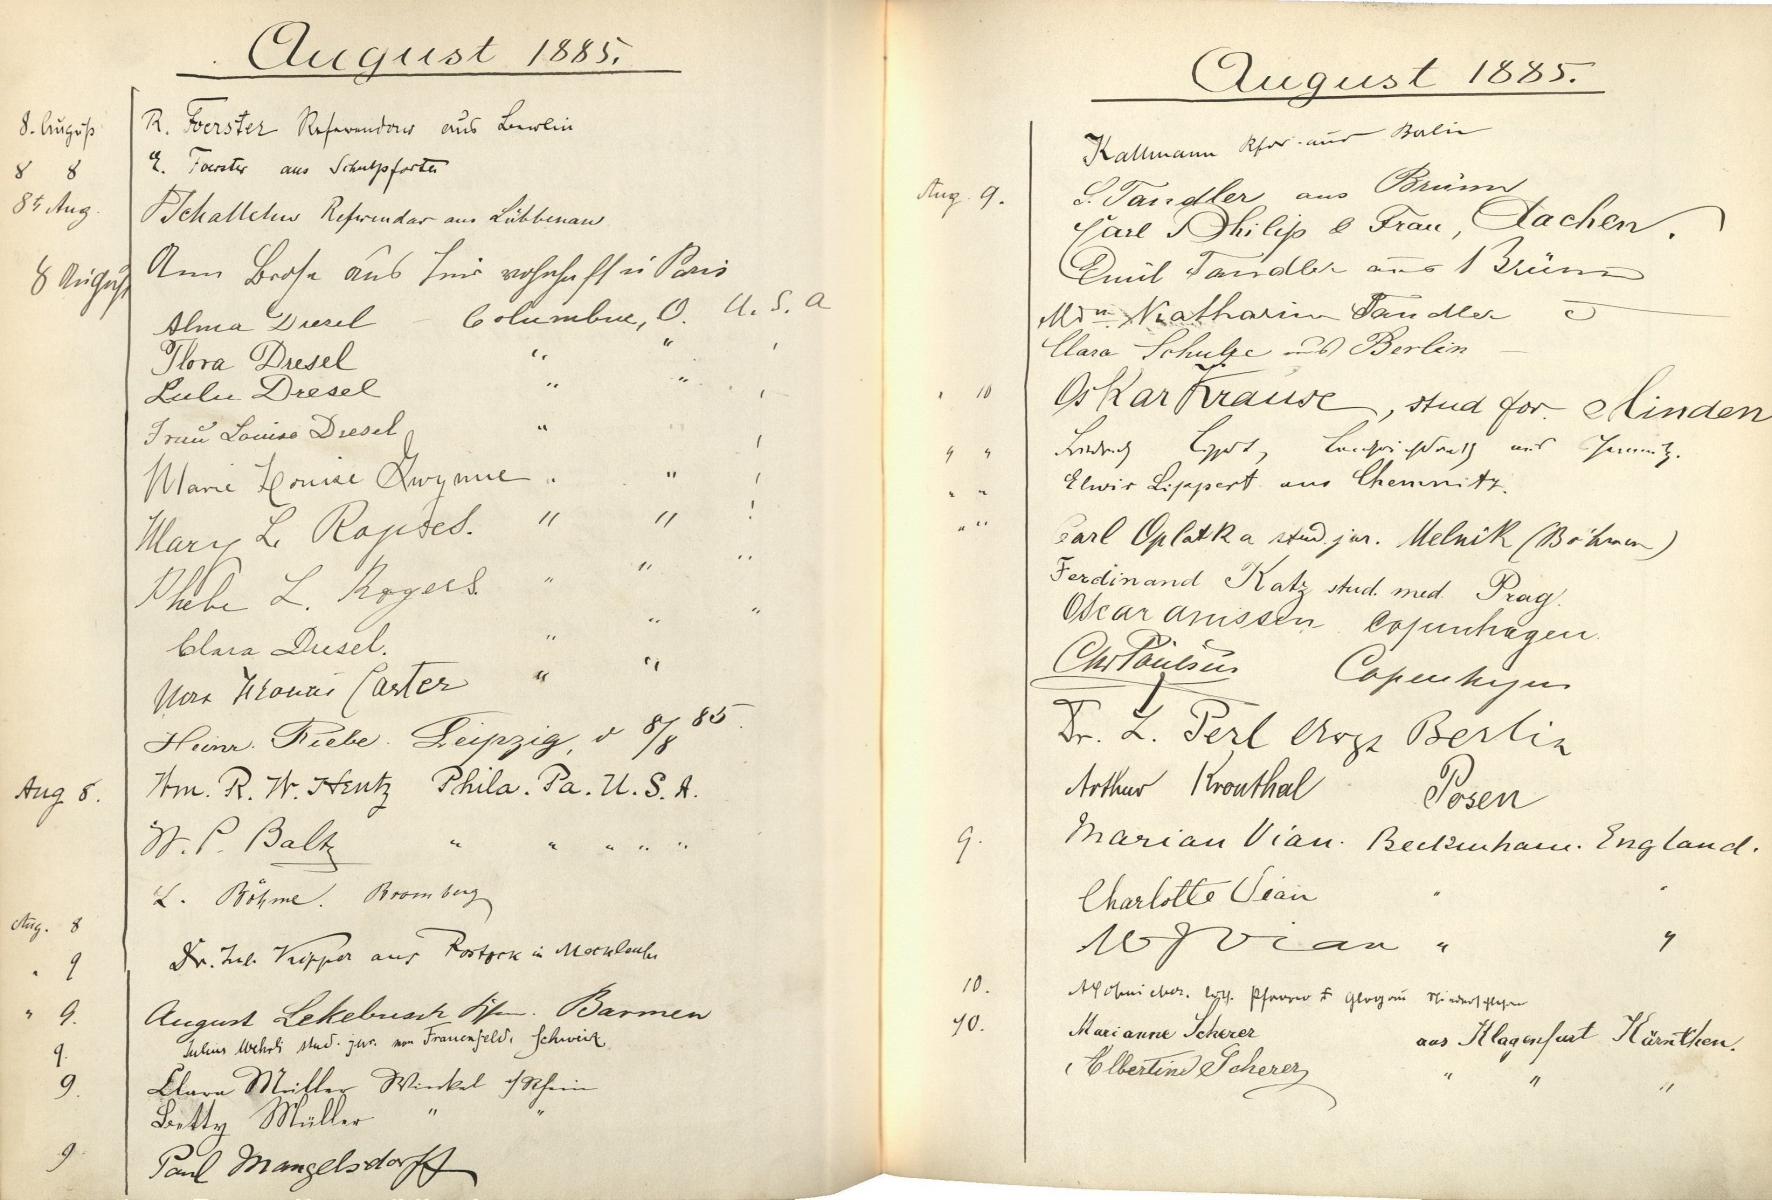 August 1885.
8. August R. Foerster Referendar aus Berlin
8 8 E. Foerster aus Schulpforta
8t Aug. Referendar aus Lübbenau
8 August Ann aus wohnhaft in Paris
Alma Dresel Columbus, O. U. S. A
Flora Dresel " " "
Lulu Dresel " " "
Frau Louise Dresel " "
Marie Louise Gwynne " " "
Mary L. Rogers. " " "
Phebe L. Rogers. " " "
Clara Dresel. " " "
Nora Carter " "
Heinr. Fiebe. Leipzig, d 8/8 85.
Aug 8. Wm. R. W. Hentz Phila. Pa. U. S. A.
W. P. Baltz " " " " "
L. Böhme. Bromberg
Aug. 8
" 9 Dr. Jul. aus Rostock in Mecklenbg
" 9. August Lekebusch Kfm. Barmen
9. Julius Wehrli stud. jur. von Frauenfeld, Schweiz
9. Clara Müller Winkel a/Rhein
Betty Müller " "
9 Paul Mangelsdorff
August 1885.
Kallmann Rfdr. aus Berlin
Aug. 9. S. Tandler aus Brünn
Carl Philip & Frau, Aachen.
Emil Tandler aus Brünn
Katharina Tandler
Clara Schulze aus Berlin
" 10 Oskar Krause, stud for. Minden
" " Friedrich aus Chemnitz.
" " Elwir Lippert aus Chemnitz.
" " Carl Oplatka stud. jur. Melnik (Böhmen)
Ferdinand Katz stud. med. Prag.
Oscar Copenhagen.
Chr Paulsen Copenhagen
Dr. L. Perl Arzt Berlin
Arthur Kronthal Posen
9. Marian Vian. Beckenham. England.
Charlotte Vian " "
W J Vian " "
10. Pfarrer Glogau Niederschlesien
10. Marianne Scherer aus Klagenfurt Kärnthen.
Albertine Scherer " " "